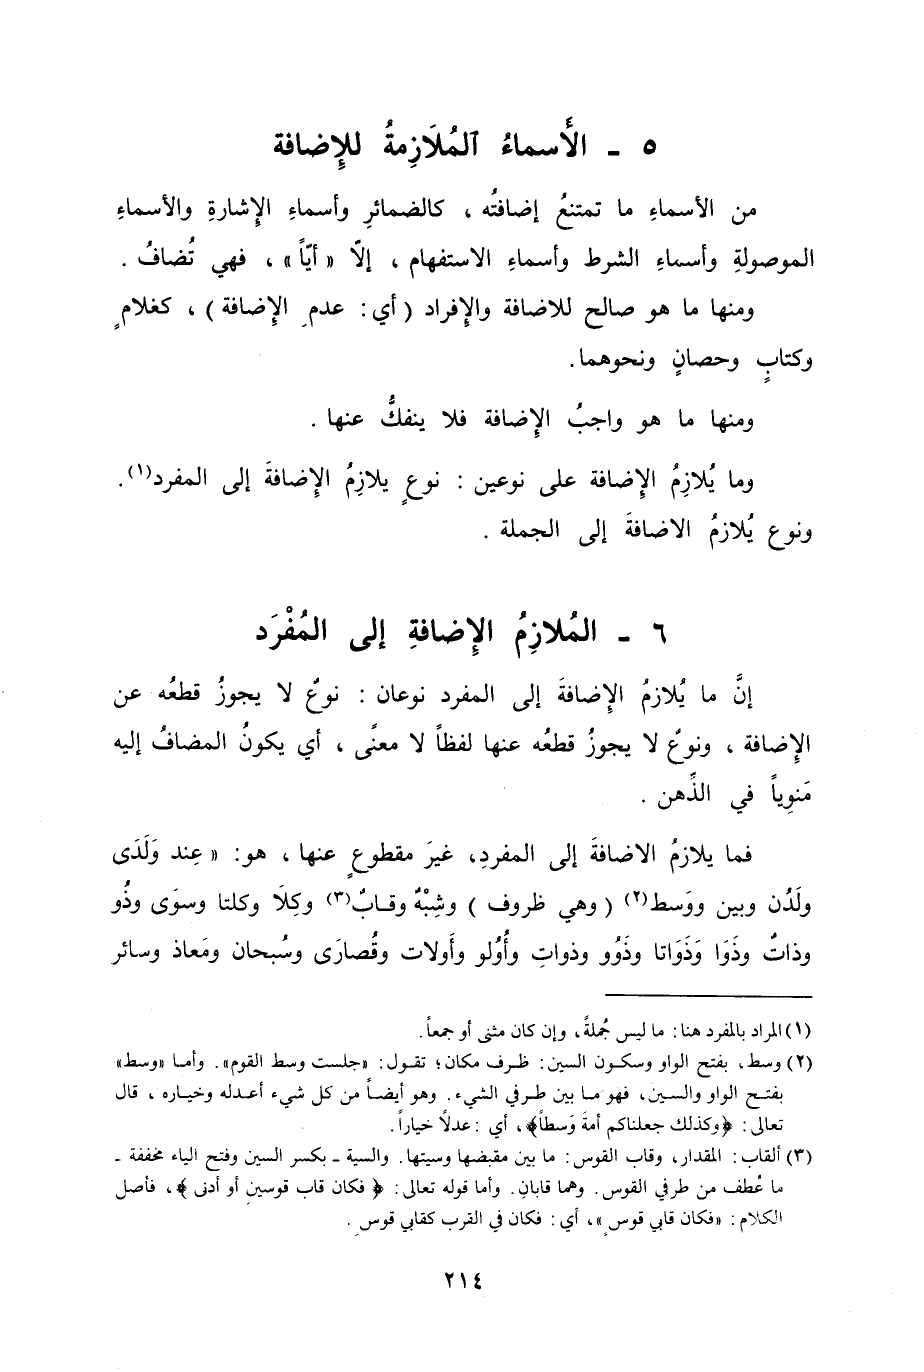 ٥ ـ الأَسماءُ ٱلمُلَازِمةُ للإِضافة
من الأسماءِ ما تمتنعُ إضافتُه ، كالضمائرِ وأسماءِ الإِشارةِ والأسماءِ
الموصولةِ وأسماءِ الشرط وأسماءِ الاستفهام ، إلّا « أيّاً » ، فهي تُضافُ .
ومنها ما هو صالح للاضافة والإِفراد ( أي : عدمِ الإِضافة ) ، كغلامٍ
وكتابٍ وحصانٍ ونحوهما .
ومنها ما هو واجبُ الإِضافة فلا ينفكُّ عنها .
وما يُلازِمُ الإِضافة على نوعين : نوعٍ يلازِمُ الإِضافةَ إلى المفرد(١) .
ونوع يُلازمُ الاضافةَ إلى الجملة .
٦ ـ المُلازِمُ الإِضافةِ إلى المُفْرَد
إنَّ ما يُلازمُ الإِضافةَ إلى المفرد نوعان : نوعٌ لا يجوزُ قطعُه عن
الإِضافة ، ونوعٌ لا يجوزُ قطعُه عنها لفظاً لا معنًى ، أي يكونُ المضافُ إليه
مَنوِياً في الذِّهن .
فما يلازمُ الاضافةَ إلى المفردِ، غيرَ مقطوعٍ عنها ، هو : « عِند وَلَدَى
ولَدُن وبين ووَسط(٢) ( وهي ظروف ) وشِبْهٌ وقابٌ(٣) وكِلَا وكلتا وسوَى وذُو
وذاتٌ وذَوَا وَذَوَاتا وذَوُو وذواتِ وأُوُلو وأَولات وقُصارَى وسُبحان ومَعاذ وسائر
(١) المراد بالمفرد هنا : ما ليس جُملةً، وإن كان مثنى أو جمعاً .
(٢) وسط، بفتح الواو وسكون السين : ظرف مكان؛ تقول : «جلست وسط القوم» . وأما «وسط»
بفتح الواو والسين، فهو ما بين طرفي الشيء . وهو أيضاً من كل شيء أعدله وخياره ، قال
تعالى : ﴿وكذلك جعلناكم أمة وَسطاً﴾، أي : عدلًا خياراً .
(٣) ألقاب : المقدار، وقاب القوس : ما بين مقبضها وسيتها . والسية ـ بكسر السين وفتح الياء مخففة ـ
ما عُطف من طرفي القوس . وهما قابانِ . وأما قوله تعالى : ﴿ فكان قاب قوسين أو أدنى ﴾، فأصل
الكلام : «فكان قابي قوسٍ »، أي : فكان في القرب كقابي قوسٍ .
٢١٤